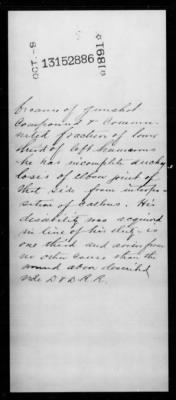 OCT.-8 13152886 *1891*
because of gunshot
Compound & Commin-
uted fraction of lower
third of left humerus
he has incomplete anchy-
losis of elbow joint of
that side from interpo-
sition of Callous. His
disability was acquired
in line of his duty - is
one third and arises from
no other cause than the
wound above described
vide D & D R. R.